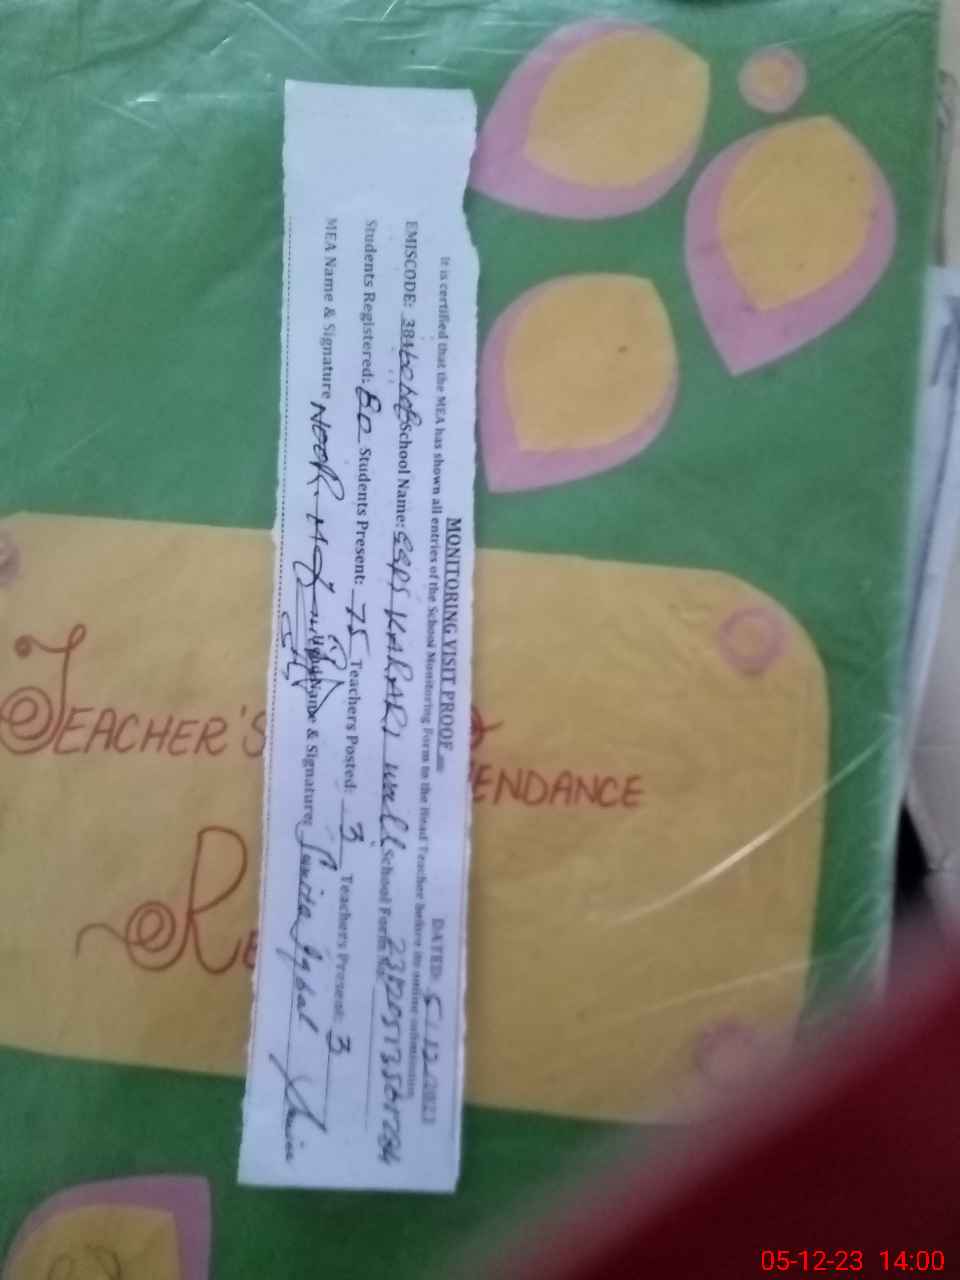 MONITORING VISIT PROOF
DATED: 5-12-2023
It is certified that the MEA has shown all entries of the School Monitoring Form to the Head Teacher before its online submission
EMISCODE: School Name: GGPS KARARI wall School Form No:
Students Registered: 80 Students Present: 75 Teachers Posted: 3 Teacher's Present: 3
MEA Name & Signature NOOR Name & Signature: Iqbal
TEACHER'S
ENDANCE
RE
05-12-23 14:00